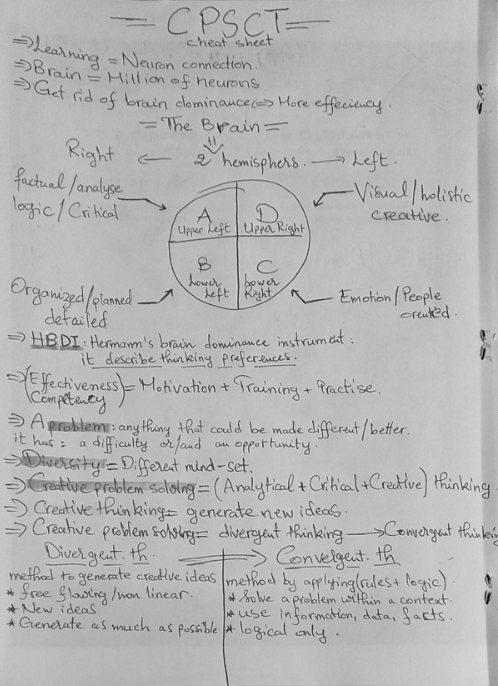 CPSCT
cheat sheet
⇒ Learning = Neuron connection.
⇒ Brain = Million of neurons
⇒ Get rid of brain dominance ⇔ More effeciency.
= The Brain =
Right ← 2 hemisphers. → Left.
factual/analyse
logic/Critical
Visual/holistic
creative.
A
Upper Left
D
Upper Right
B
Lower
Left
C
Lower
Right
Organized/planned
detailed
Emotion/People
oriented.
⇒ HBDI: Hermann's brain dominance instrument:
it describe thinking preferences.
⇒ (Effectiveness) = Motivation + Training + Practise.
(Competency)
⇒ A problem: anything that could be made different/better.
it has: a difficulty or/and an opportunity.
⇒ Diversity = Different mind-set.
⇒ Creative problem solving = (Analytical + Critical + Creative) thinking
⇒ Creative thinking = generate new ideas.
⇒ Creative problem solving = divergent thinking → Convergent thinking
Divergent. th ⇒ Convergent. th
method to generate creative ideas
* free flowing/non linear.
* New ideas
* Generate as much as possible
method by applying (rules + logic).
* Solve a problem within a context.
* use information, data, facts.
* logical only.